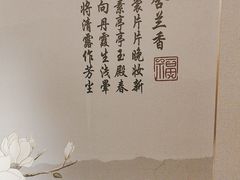 含兰香
裳片片晚妆新
素亭亭玉殿春
向丹霞生浅晕
将清露作芳尘
福